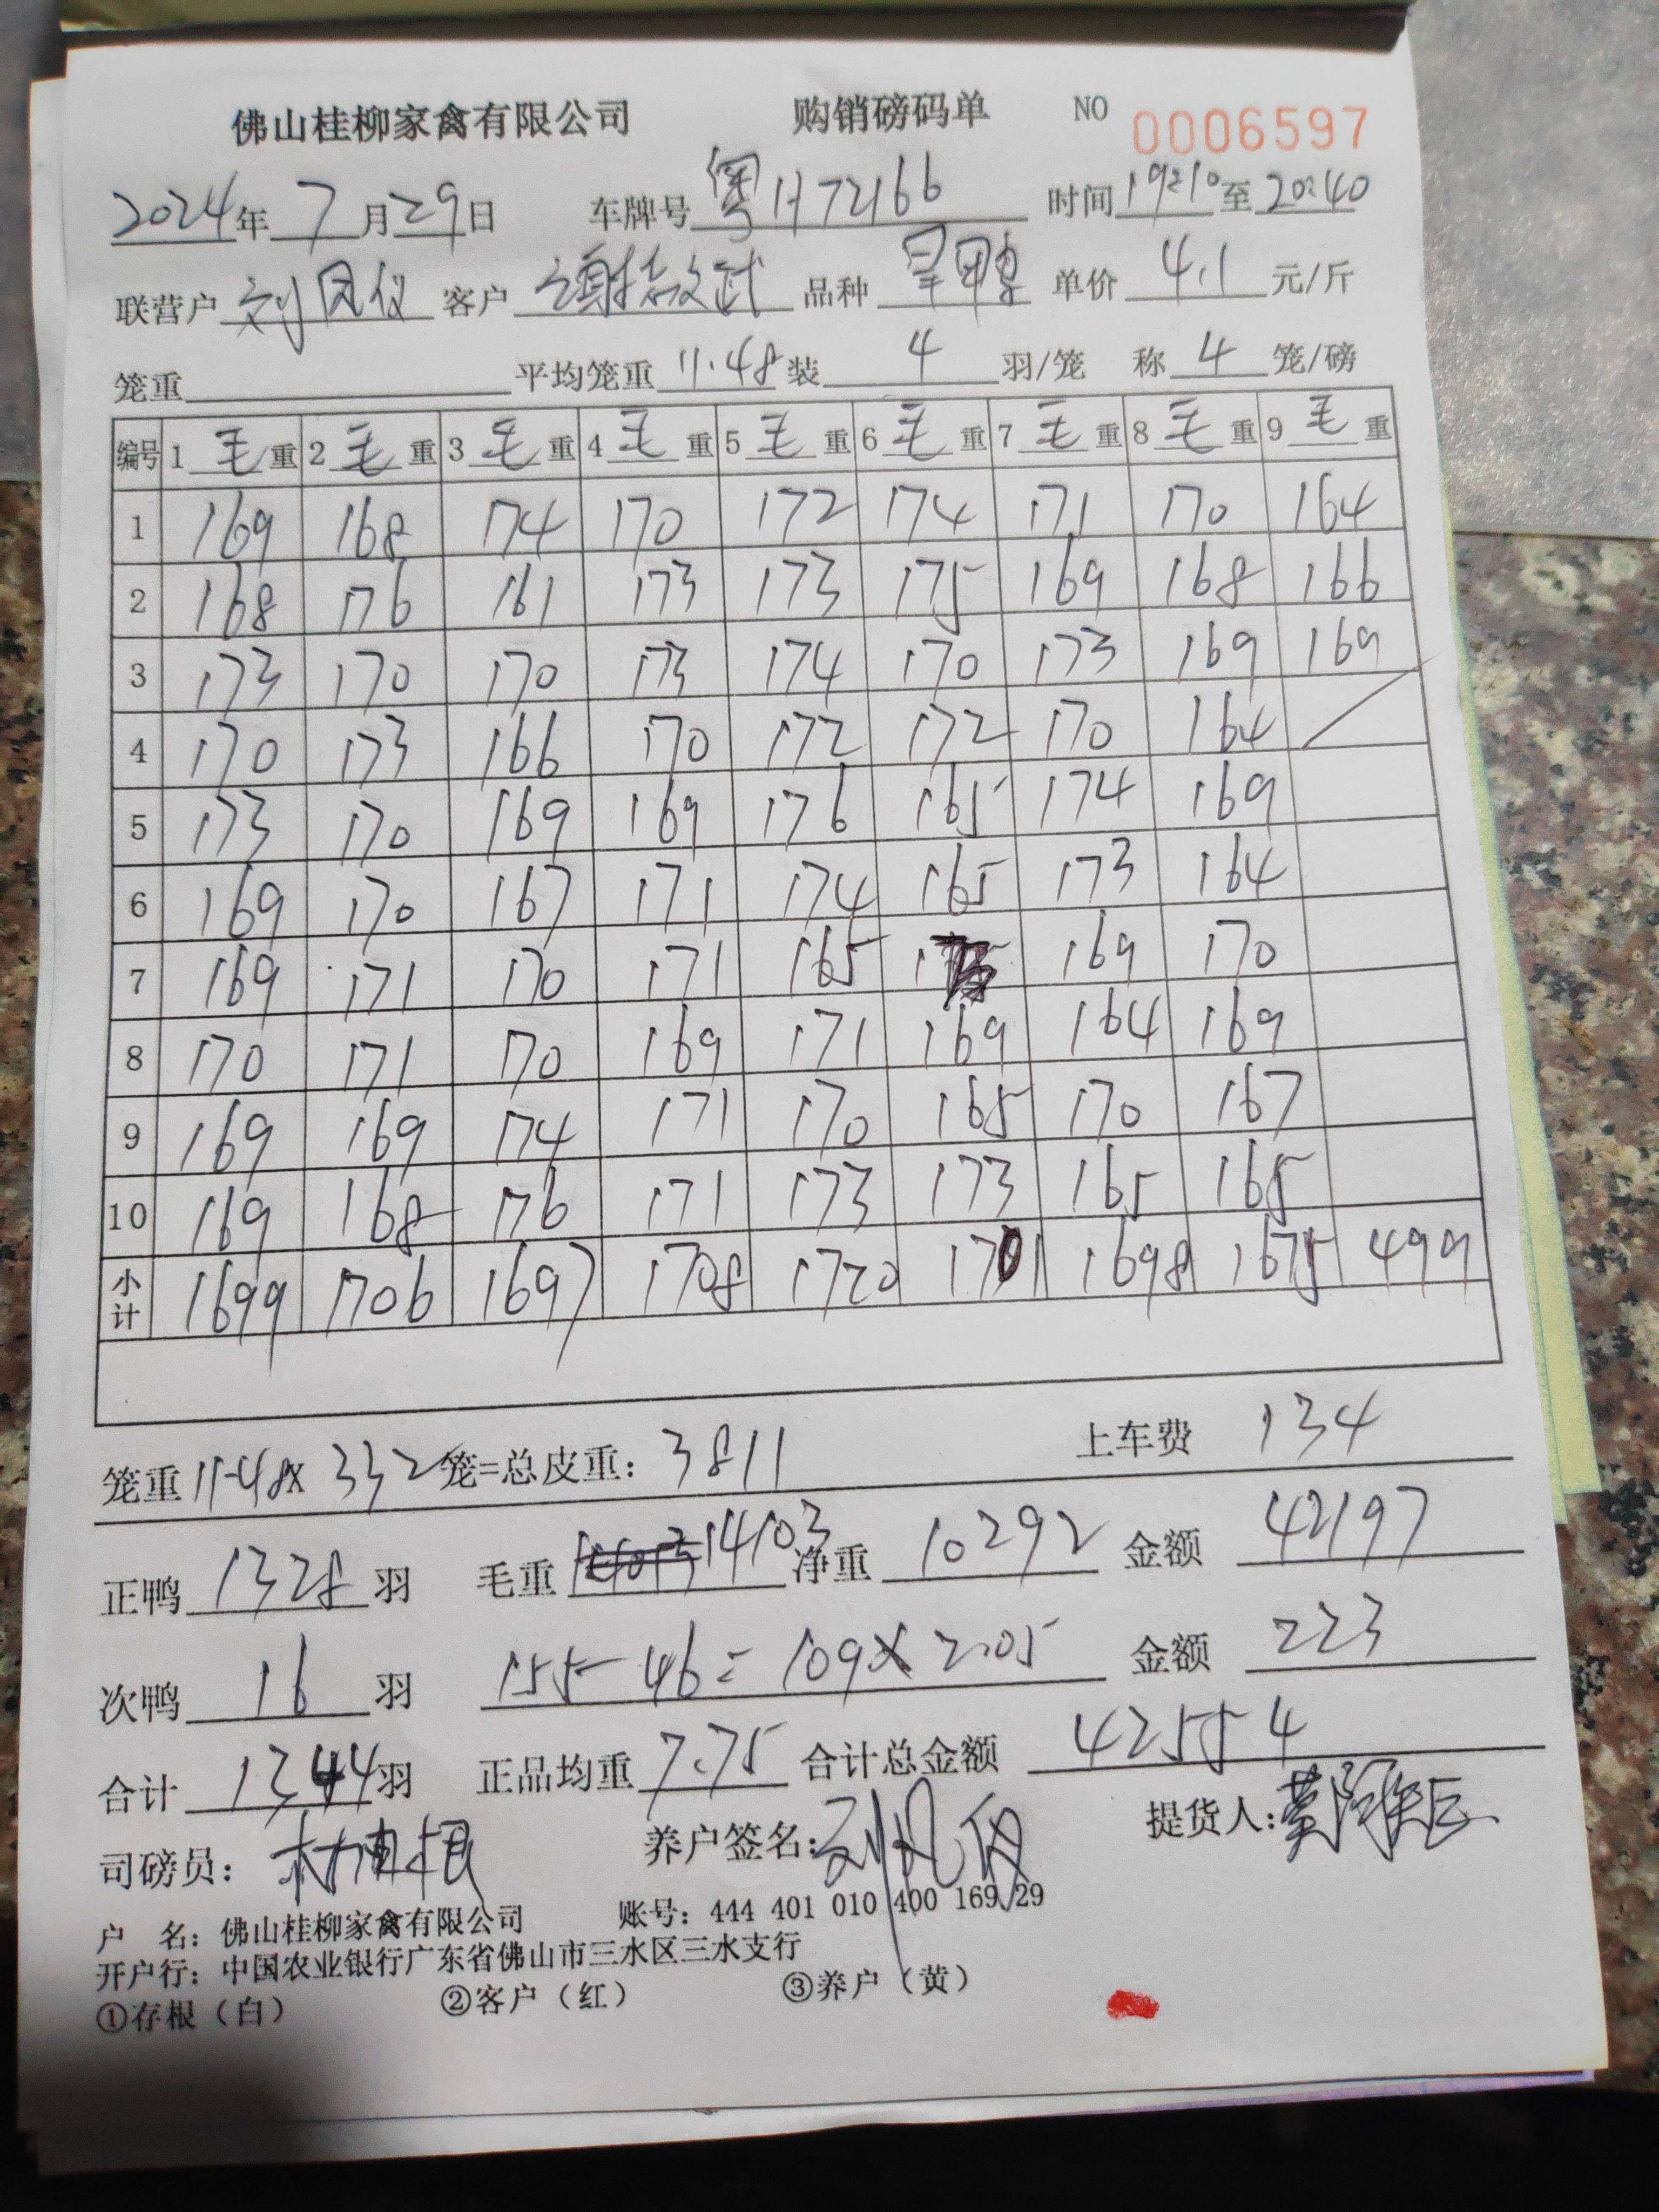 佛山桂柳家禽有限公司 购销磅码单 NO 0006597
2024年7月29日 车牌号 粤H72166 时间 19:10 至 20:40
联营户 刘凤仪 客户 品种 旱鸭 单价 4.1 元/斤
笼重 平均笼重 11.48 装 4 羽/笼 称 4 笼/磅
编号 1 毛重 2 毛重 3 毛重 4 毛重 5 毛重 6 毛重 7 毛重 8 毛重 9 毛重
1 169 168 174 170 172 174 171 170 164
2 168 176 161 173 173 175 169 168 166
3 173 170 170 173 174 170 173 169 169
4 170 173 166 170 172 172 170 164
5 173 170 169 169 176 165 174 169
6 169 170 167 171 174 165 173 164
7 169 171 170 171 165 169 170
8 170 171 170 169 171 169 164 169
9 169 169 174 171 170 165 170 167
10 169 168 176 171 173 173 165 165
小计 1699 1706 1697 1708 1720 1701 1698 1675 499
笼重 11.48 x 332 笼=总皮重: 3811 上车费 134
正鸭 1328 羽 毛重 14103 净重 10292 金额 42197
次鸭 16 羽 155-46=109x2.05 金额 223
合计 1344 羽 正品均重 7.75 合计总金额 42554
司磅员: 养户签名: 刘凤仪 提货人:
户 名: 佛山桂柳家禽有限公司 账号: 444 401 010 400 169 29
开户行: 中国农业银行广东省佛山市三水区三水支行
①存根（白） ②客户（红） ③养户（黄）